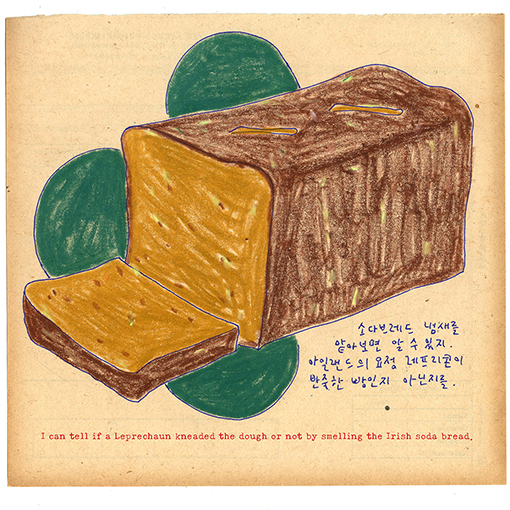 소다브레드 냄새를
맡아보면 알 수 있지.
아일랜드의 요정 레프리콘이
반죽한 빵인지 아닌지를.
I can tell if a Leprechaun kneaded the dough or not by smelling the Irish soda bread.